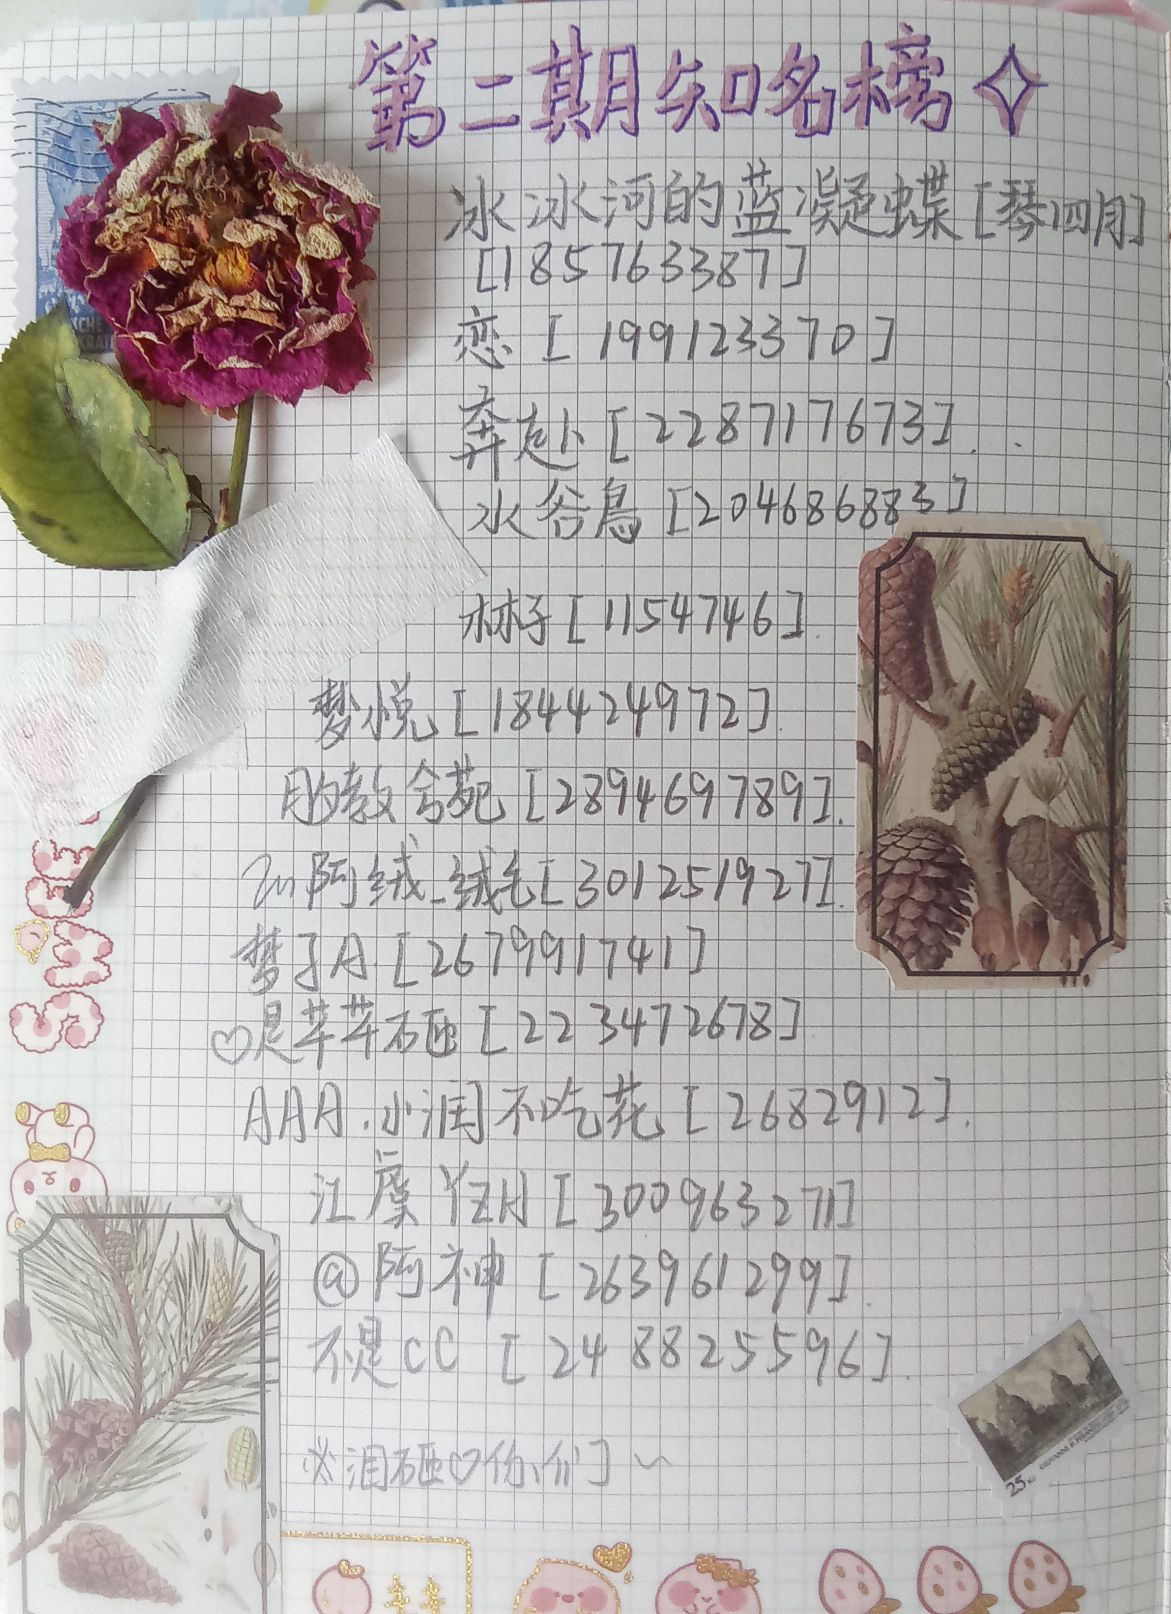 第二期知名榜
冰冰河的蓝凝蝶[琴四月]
[1857633387]
恋 [199123370]
奔赴[228717673].
水谷鸟[204686883]
林子[1154746].
梦悦[1844249972].
[2894697789].
阿绒_绒毛[301251927].
梦子A [2679991741]
♡是芊芊石亚[2234726 78]
AAA.小润不吃花[2682912].
江虞丫ZH[3009632711]
@阿神[263961299].
不是CC [2488255596].
♡你们~
25
SMILE